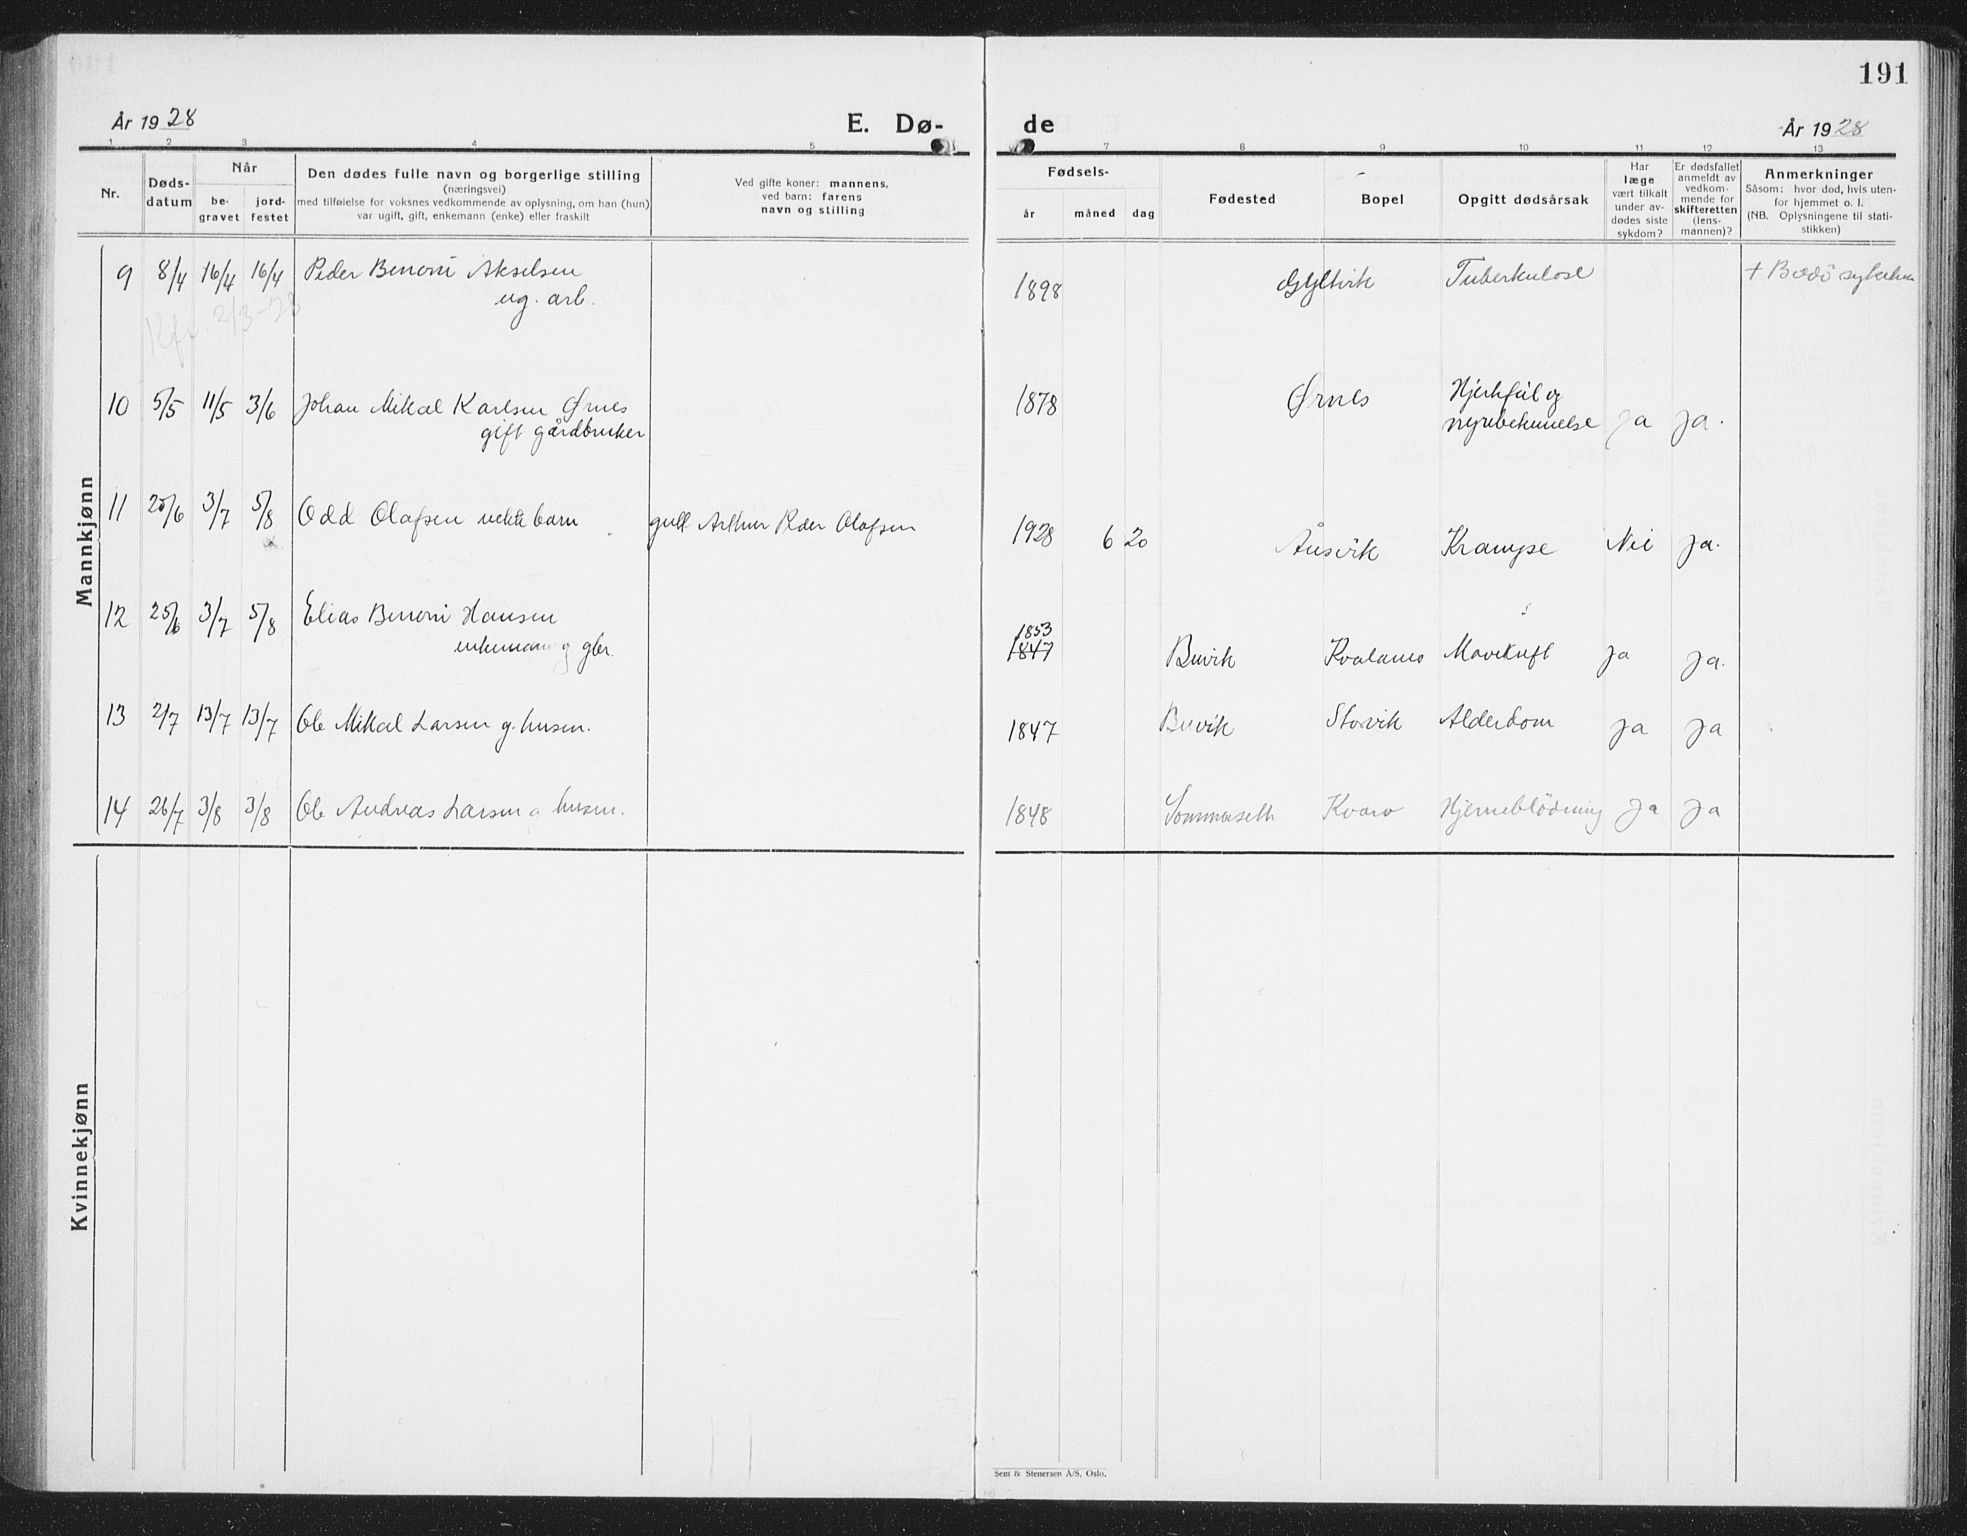 191
År 1928
E. Dø-
de
År 1928
1 2 3 4 5 7 8 9 10 11 12 13
Nr.
Døds-
datum
Når
be-
gravet
jord-
festet
Den dødes fulle navn og borgerlige stilling
(næringsvei)
med tilføielse for voksnes vedkommende av oplysning, om han (hun)
var ugift, gift, enkemann (enke) eller fraskilt
Ved gifte koner: mannens,
ved barn: farens
navn og stilling
Fødsels-
år måned dag
Fødested
Bopel
Opgitt dødsårsak
Har
læge
vært tilkalt
under av-
dødes siste
sykdom?
Er dødsfallet
anmeldt av
vedkom-
mende for
skifteretten
(lens-
mannen)?
Anmerkninger
Såsom: hvor død, hvis uten-
for hjemmet o. l.
(NB. Oplysningene til stati-
stikken)
Mannkjønn
9 8/4 16/4 16/4 Peder Benoni Akselsen 1898 Gyltvik Tuberkulose + Bodö
ug. arb.
2/3-28
10 5/5 11/5 3/6 Johan Mikal Karlsen Ørnes 1878 Ørnes Hjertefeil og
gift gårdbruker nyrebetennelse ja ja.
11 20/6 3/7 5/8 Odd Olafsen barn gutt Arthur Peder Olafsen 1928 6 20 Åusvik Krampe Nei ja.
12 25/6 3/7 5/8 Elias Benoni Hansen 1853
enkemann g gbr. 1847 Buvik Kvalanes Mavekreft ja ja.
13 2/7 13/7 13/7 Ole Mikal Larsen g. husm. 1847 Buvik Storvik Alderdom ja ja
14 26/7 3/8 3/8 Ole Andreas Larsen g husm. 1848 Sommerseth Kvarv Hjerneblödning ja ja
Kvinnekjønn
Sem & Stenersen A/S, Oslo.